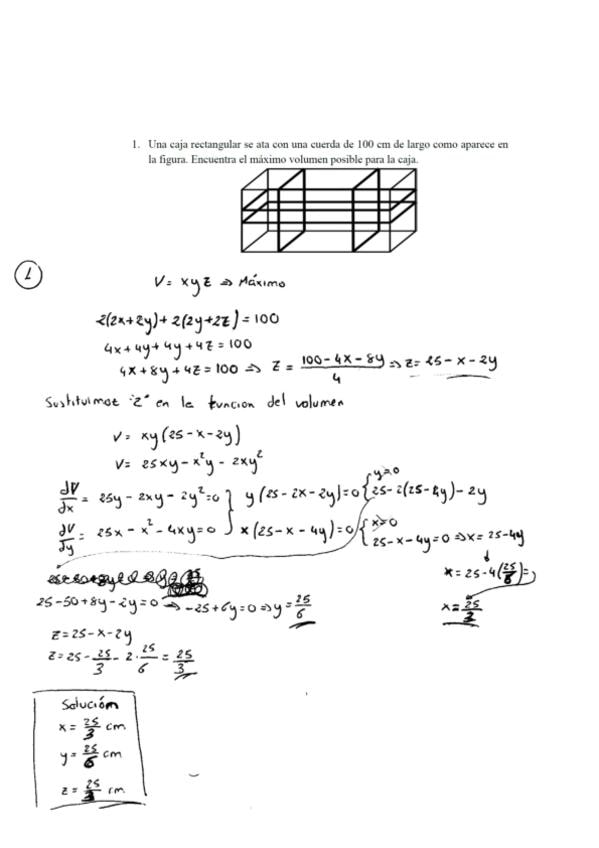 1. Una caja rectangular se ata con una cuerda de 100 cm de largo como aparece en
la figura. Encuentra el máximo volumen posible para la caja.
1
V = xyz ⇒ Máximo
2(2x+2y)+2(2y+2z)=100
4x+4y+4y+4z=100
4x+8y+4z=100 ⇒ z = (100-4x-8y)/4 ⇒ z=25-x-2y
Sustituimos "z" en la función del volumen
V= xy(25-x-2y)
V= 25xy-x²y-2xy²
y=0
∂V/∂x = 25y-2xy-2y²=0 } y(25-2x-2y)=0 { 25-2(25-4y)-2y
∂V/∂y = 25x-x²-4xy=0 } x(25-x-4y)=0 { x=0
25-x-4y=0 ⇒ x=25-4y
x=25-4(25/6)=
25-50+8y-2y=0 ⇒ -25+6y=0 ⇒ y=25/6
x=25/3
z=25-x-2y
z=25-25/3-2·25/6=25/3
Solución
x=25/3 cm
y=25/6 cm
z=25/3 cm